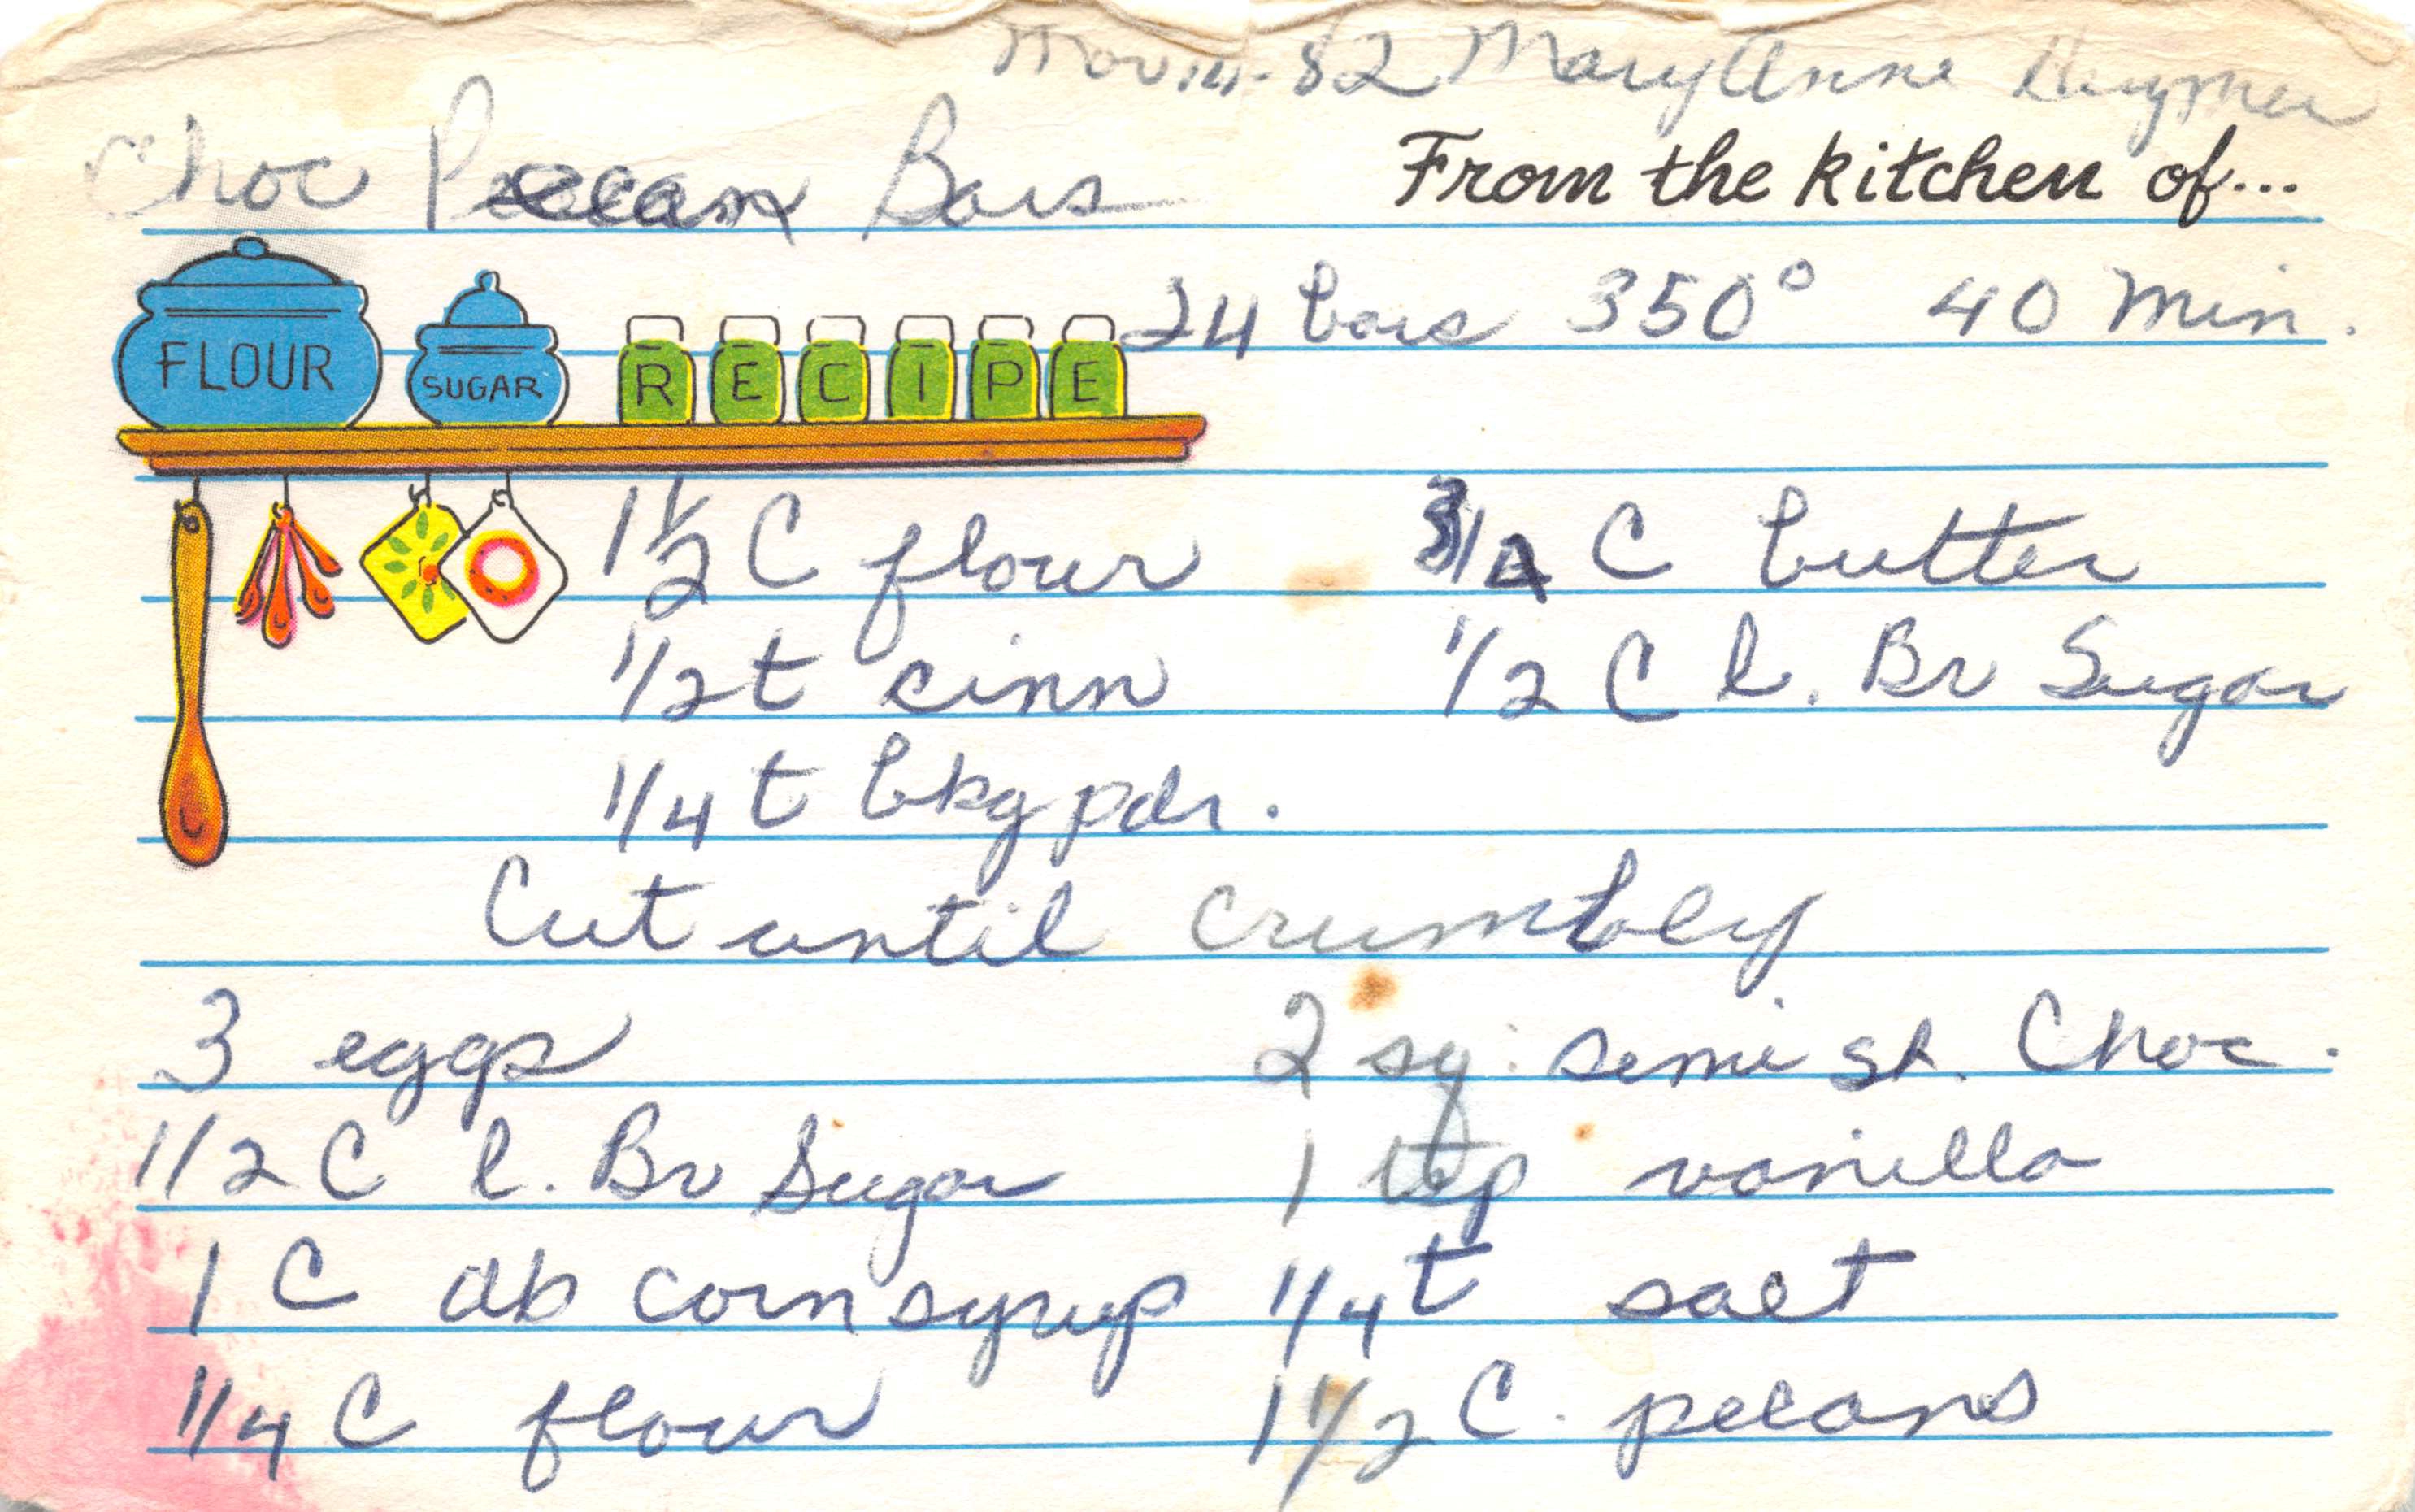 Nov 14 - 82 Mary Anne
Choc Pecan Bars
From the kitchen of...
24 bars 350° 40 Min.
FLOUR SUGAR RECIPE
1 1/2 C flour 3/4 C butter
1/2 t cinn 1/2 C l. Br Sugar
1/4 t bkg pdr.
Cut until crumbly
3 eggs 2 sq. semi st. Choc.
1/2 C l. Br Sugar 1 tsp vanilla
1 C dk corn syrup 1/4 t salt
1/4 C flour 1 1/2 C. pecans